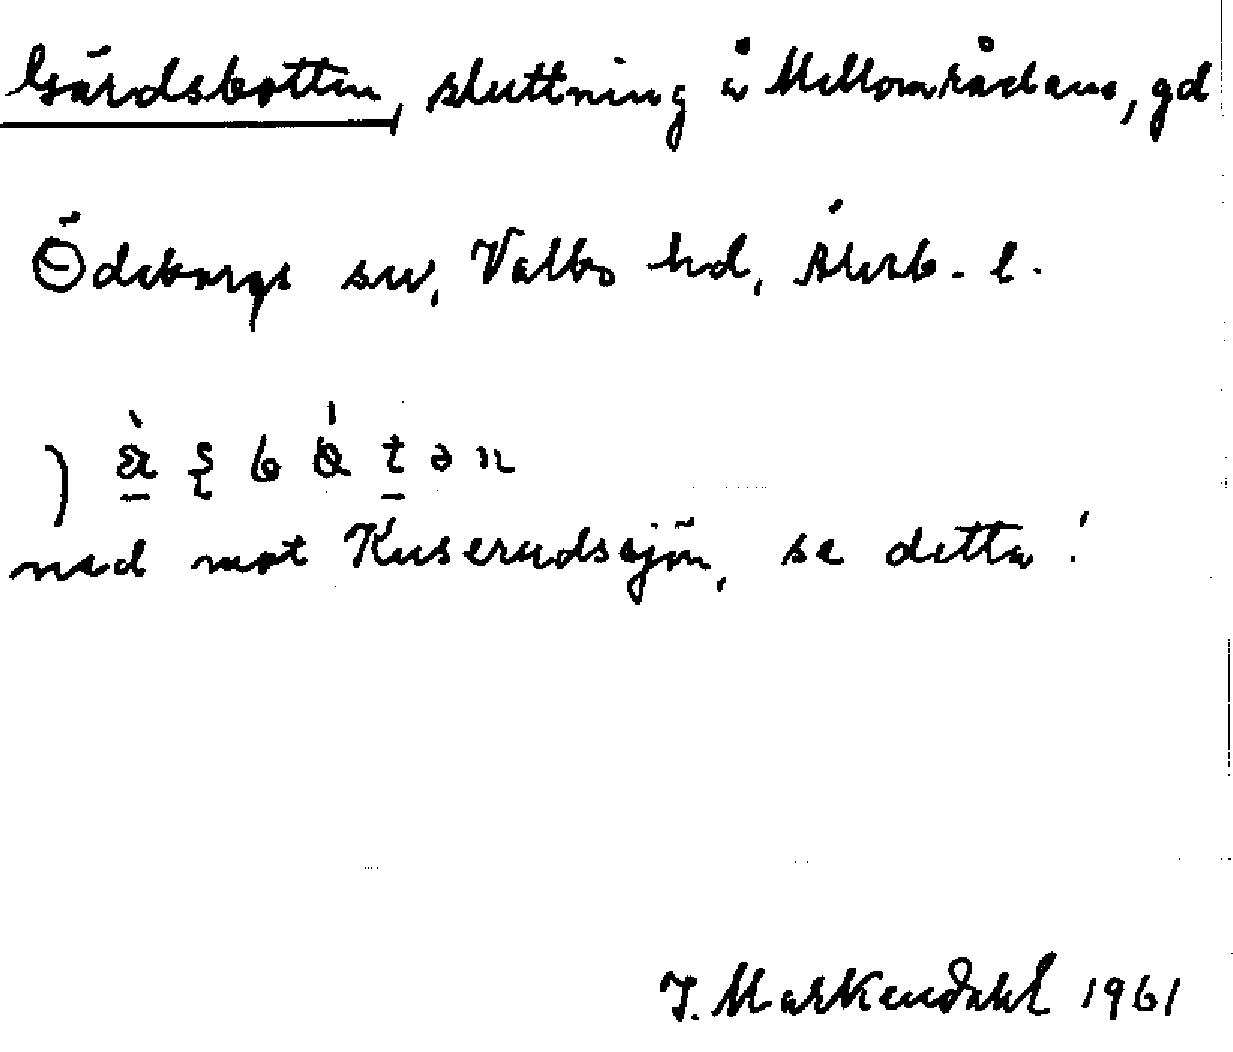 Gärdsbotten, sluttning å Mellområdane, gd
Ödeborgs sn, Valbo hd, Älvsb. l.
ned mot Kuserudssjön, se detta!
J. Markendahl 1961